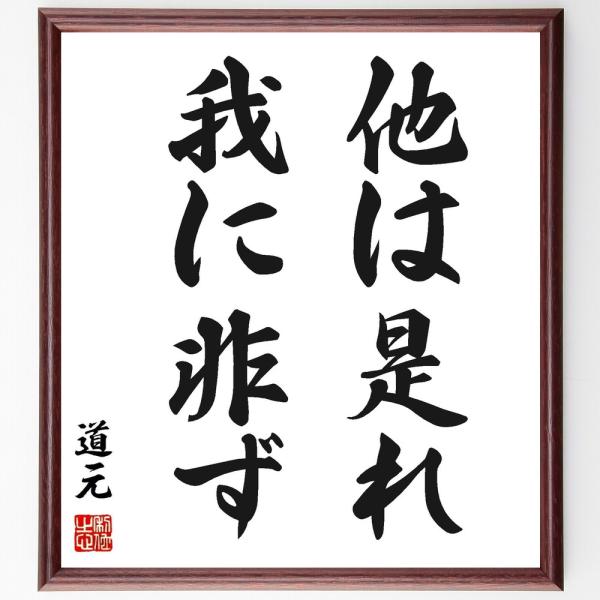 他は是れ
我に非ず
道元